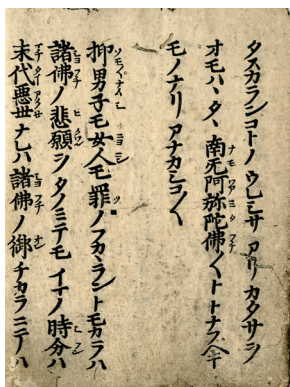 タスカランコトノウレシサアリカタサヲ
オモハヽタヽ南无阿弥陀佛〱トトナフヘキ
モノナリアナカシコ〱
抑男子モ女人モ罪ノフカヽラントモカラハ
諸佛ノ悲願ヲタノミテモイマノ時分ハ
末代悪世ナレハ諸佛ノ御チカラニテハ